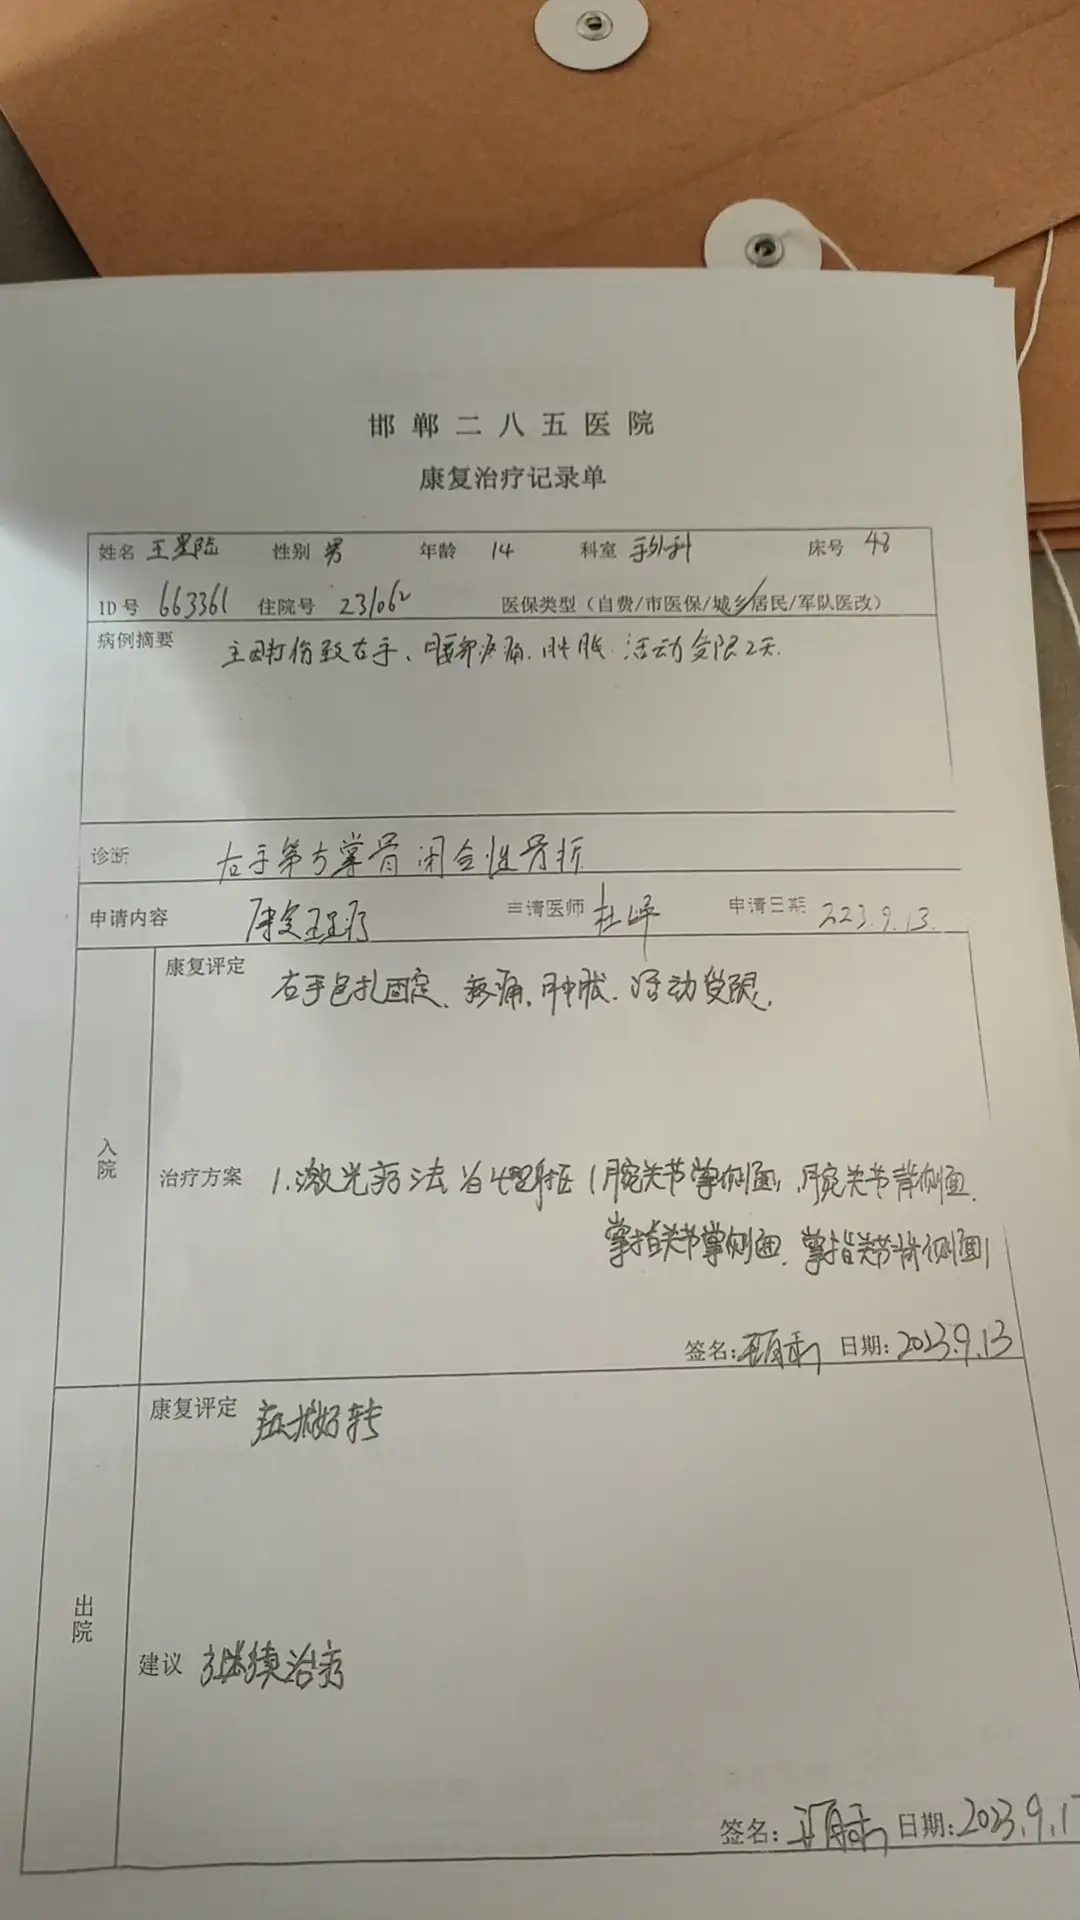 邯郸二八五医院
康复治疗记录单
姓名 王 性别 男 年龄 14 科室 手外科 床号 48
ID号 663361 住院号 231062 医保类型（自费/市医保/城乡居民/军队医改）
病例摘要 主因打伤致右手、腰部疼痛.肿胀.活动受限2天.
诊断 右手第5掌骨闭合性骨折
申请内容 康复理疗 申请医师 杜 申请日期 2023.9.13.
康复评定 右手包扎固定、疼痛.肿胀.活动受限.
入院
治疗方案 1.激光疗法 照射 (腕关节掌侧面、腕关节背侧面.
掌指关节掌侧面.掌指关节背侧面)
签名: 日期: 2023.9.13
康复评定 症状好转
出院
建议 继续治疗
签名: 日期: 2023.9.17